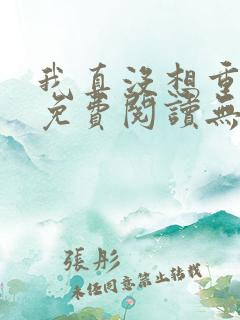 我真沒想重
免費閱讀無
張彤
未經同意禁止轉載